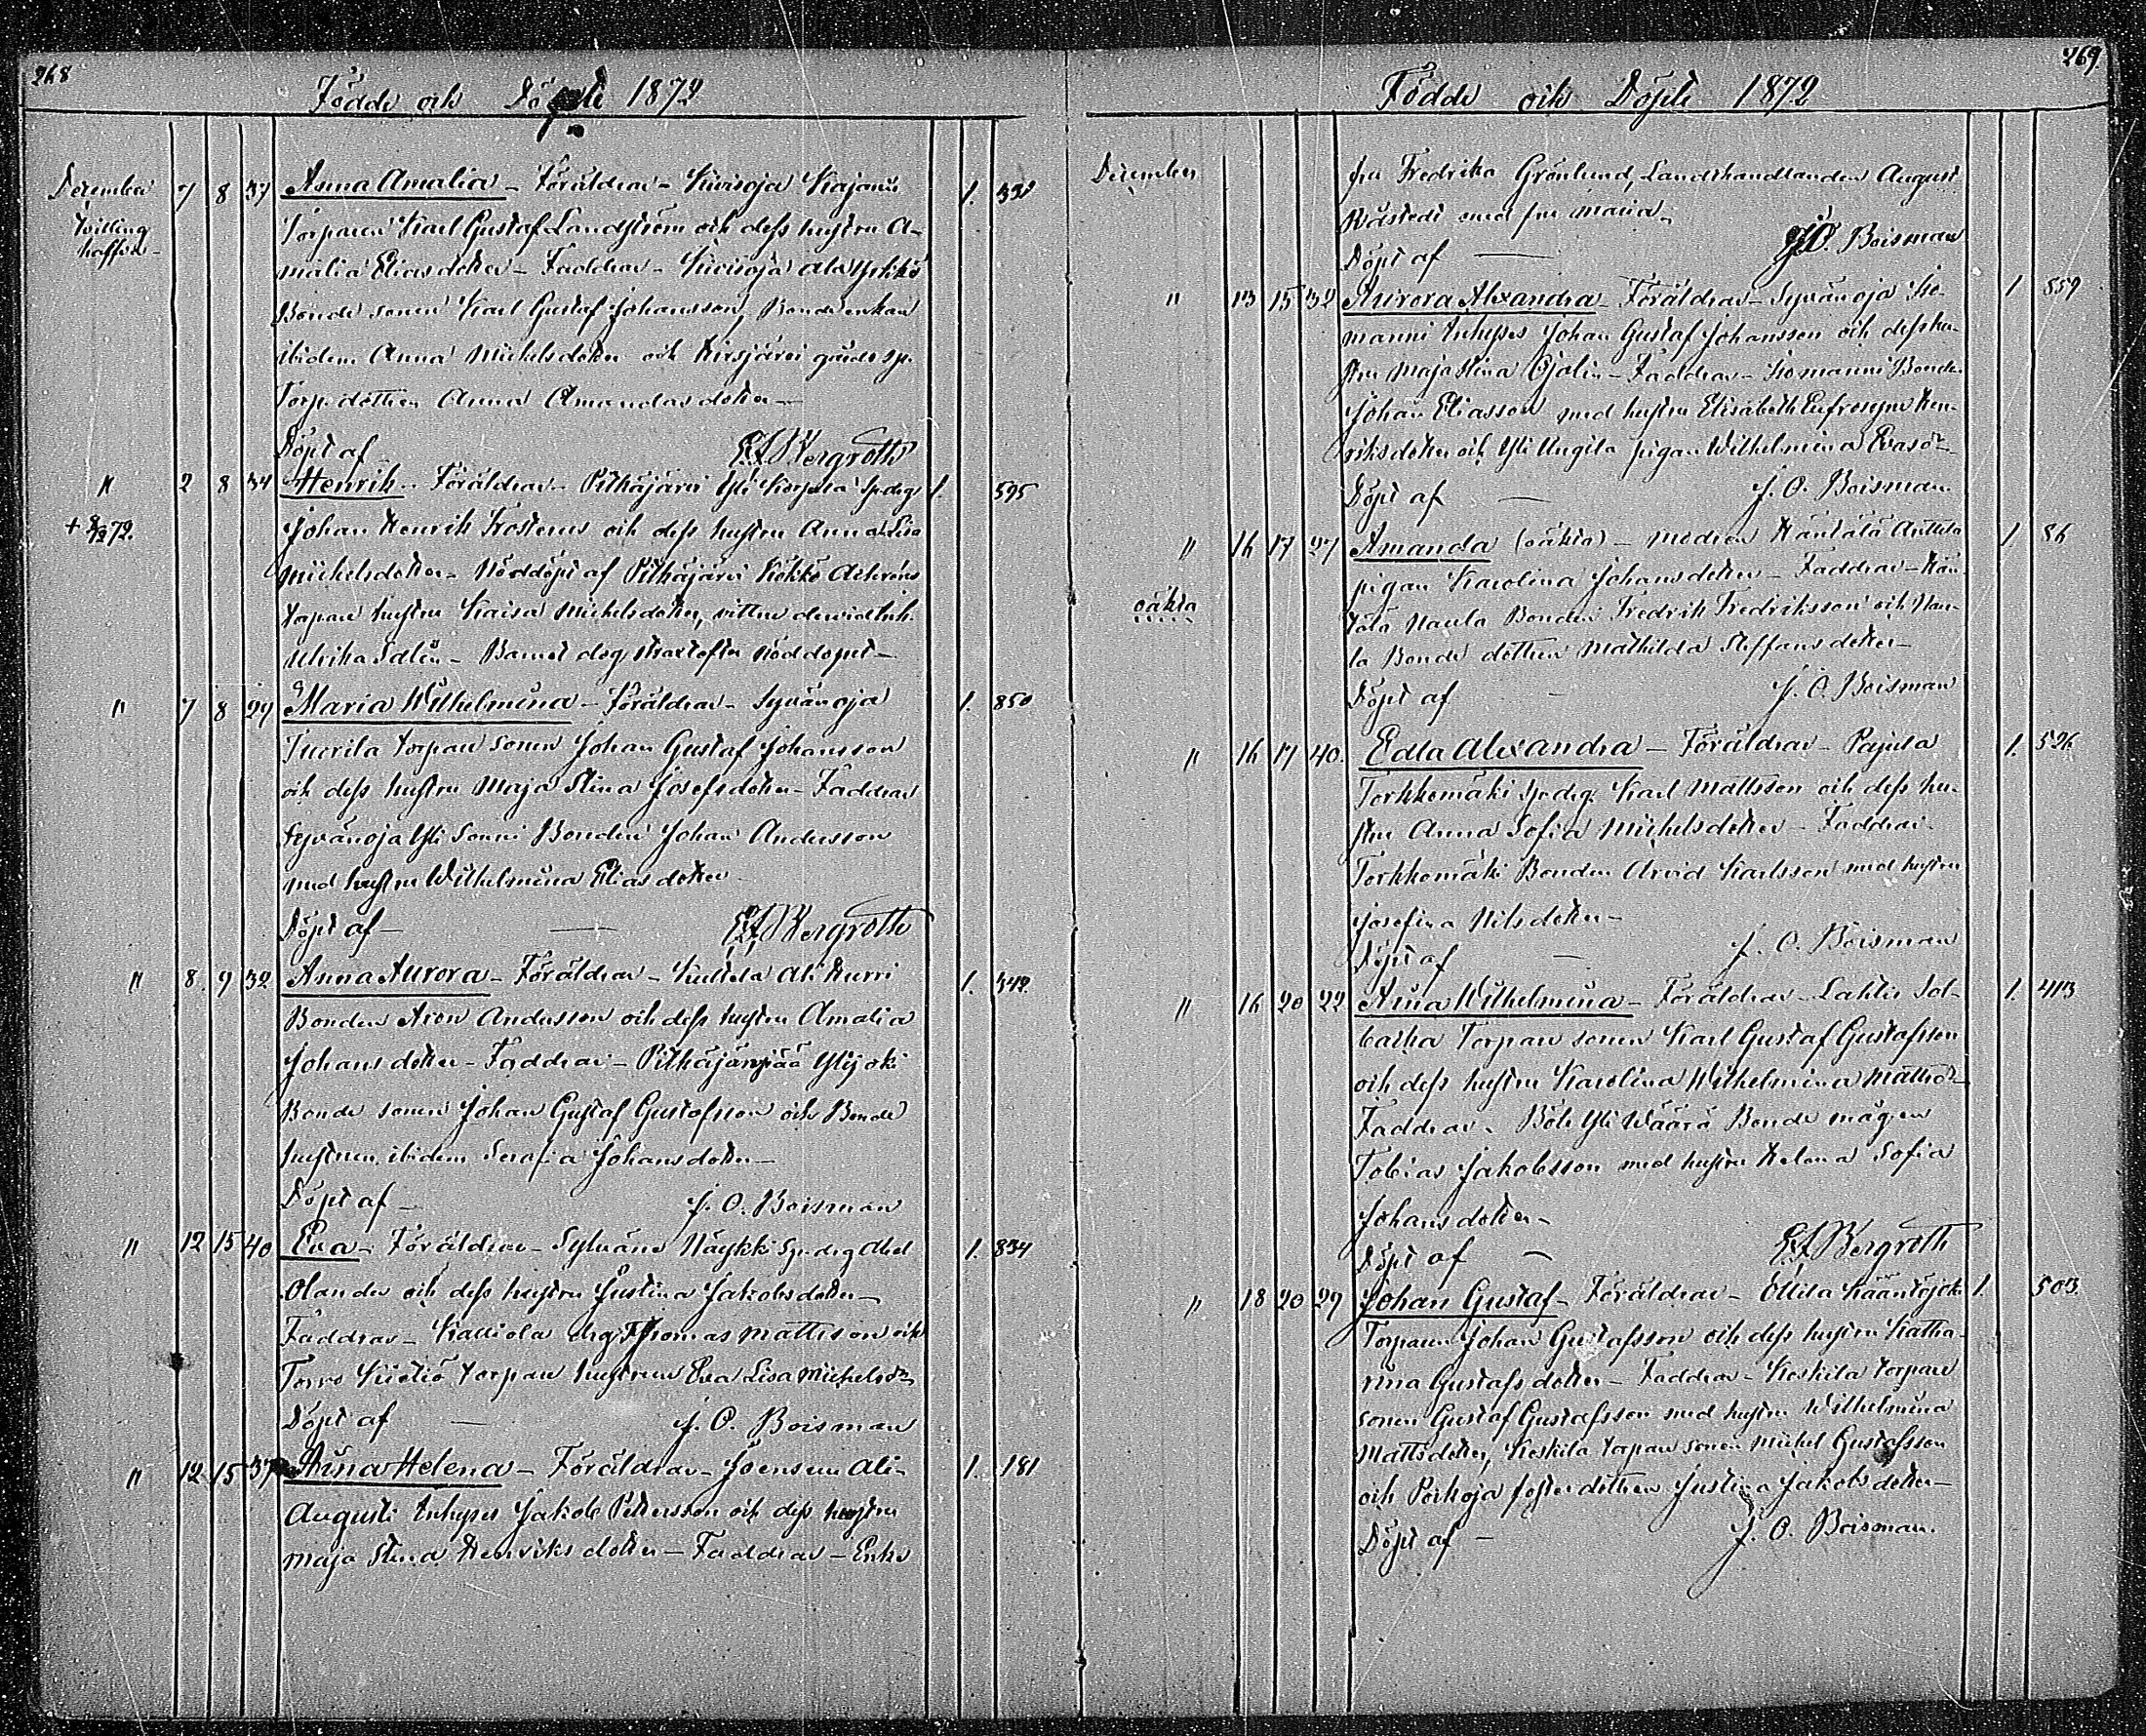 268
Födde och Döpte 1872
December 7 8 37 Anna Amalia - Föräldrar - Kivisoja Kajanus 1. 331
Tvilling
haffid -
Torparen Karl Gustaf Landström och dess hustru A-
malia Eliasdotter - Faddrar - Kivisoja Ala
Bondesonen Karl Gustaf Johansson, Bondeenkan
ibidem Anna Michelsdotter och Kirsjärvi
Torp.dottren Anna Amandasdotter -
Döpt af E.A. Bergroth
" 2 8 34 Henrik - Föräldrar - Pitkäjärvi Yli Korpela Sp.dreg 1. 595
+ 8/12 72.
Johan Henrik Frosterus och dess hustru Anna Lisa
Michelsdotter - Nöddöpt af Pitkäjärvi Kökkö
torpare hustru Kaisa Michelsdotter, vittne dervid Inh.
Ulrika Edlin - Barnet dog strax efter nöddopet -
" 7 8 29 Maria Wilhelmina - Föräldrar - Syvänoja 1. 850
Tuorila torpare sonen Johan Gustaf Johansson
och dess hustru Maja Stina Josefsdotter - Faddrar
Syvänoja Yli Sonni Bonden Johan Andersson
med hustru Wilhelmina Eliasdotter -
Döpt af - E.A. Bergroth
" 8. 9 32 Anna Aurora - Föräldrar - Kuttila Ali Kurri 1. 342.
Bonden Aron Andersson och dess hustru Amalia
Johansdotter - Faddrar - Pitkäjänpää Ylijoki
Bonde sonen Johan Gustaf Gustafsson och Bonde
hustrun ibidem Serafia Johansdotter -
Döpt af - J. O. Boisman
" 12 15 40 Eva - Föräldrar - Sylväne Näykki Sp.dreg Abel 1. 834
Olander och dess hustru Justina Jakobsdotter -
Faddrar - Kalliola drg Thomas Mattsson och
Torvo Kiotiö torpare hustrun Eva Lisa Michelsdr
Döpt af - J. O. Boisman
" 12 15 37 Aina Helena - Föräldrar - Joensuu Ali- 1. 181
Augusti Inhyses Jakob Pettersson och dess hustru
Maja Stina Henriksdotter - Faddrar - Enke
269
Födde och Döpte 1872
December
fru Fredrika Grönlund, Landthandlanden August
Råstedt med fru Maria -
Döpt af - J. O. Boisman
" 13 15 32 Aurora Alexandra - Föräldrar - Syvänoja Sio- 1. 859
manni Inhyses Johan Gustaf Johansson och dess hu-
stru Maja Stina Ojalin - Faddrar - Siomanni Bonden
Johan Eliasson med hustru Elisabeth Eufrosyne Hen-
riksdotter och Yli Ungila pigan Wilhelmina Evasdr -
Döpt af - J. O. Boisman
" 16 17 27 Amanda (oäkta) - Modren Häntälä Anttila 1. 86
oäkta
pigan Karolina Johansdotter - Faddrar - Hän-
tälä Naula Bonden Fredrik Fredriksson och Nau-
la Bonde dottren Mathilda Steffansdotter -
Döpt af - J. O. Boisman
" 16 17 40. Edla Alexandra - Föräldrar - Pajula 1. 526
Torkkomäki Sp.drg. Karl Mattsson och dess hu-
stru Anna Sofia Michelsdotter - Faddrar -
Torkkomäki Bonden Arvid Karlsson med hustru
Josefina Nilsdotter -
Döpt af - J. O. Boisman
" 16 20 22 Aina Wilhelmina - Föräldrar - Lahtis Sol- 1. 413
backa Torpare sonen Karl Gustaf Gustafsson
och dess hustru Karolina Wilhelmina Mattsdr -
Faddrar - Böle Yli Wäärä Bonde mågen
Tobias Jakobsson med hustru Helena Sofia
Johansdotter -
Döpt af - E.A. Bergroth
" 18 20 29 Johan Gustaf - Föräldrar - Ollila Kääntöjoki 1. 503.
Torparen Johan Gustafsson och dess hustru Katha-
rina Gustafsdotter - Faddrar - Koskela torpare
sonen Gustaf Gustafsson med hustru Wilhelmina
Mattsdotter, Koskela torpare sonen Michel Gustafsson
och Porhoja fosterdottren Justina Jakobsdotter -
Döpt af - J. O. Boisman.